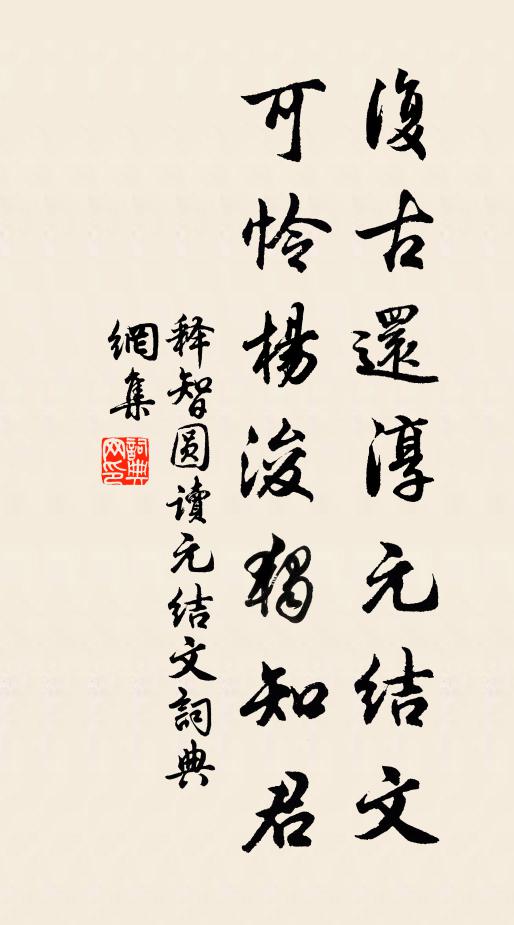 復古還淳元结文
可怜楊浚獨知君
释智圆讀元结文詞典
網集
詞典
网印